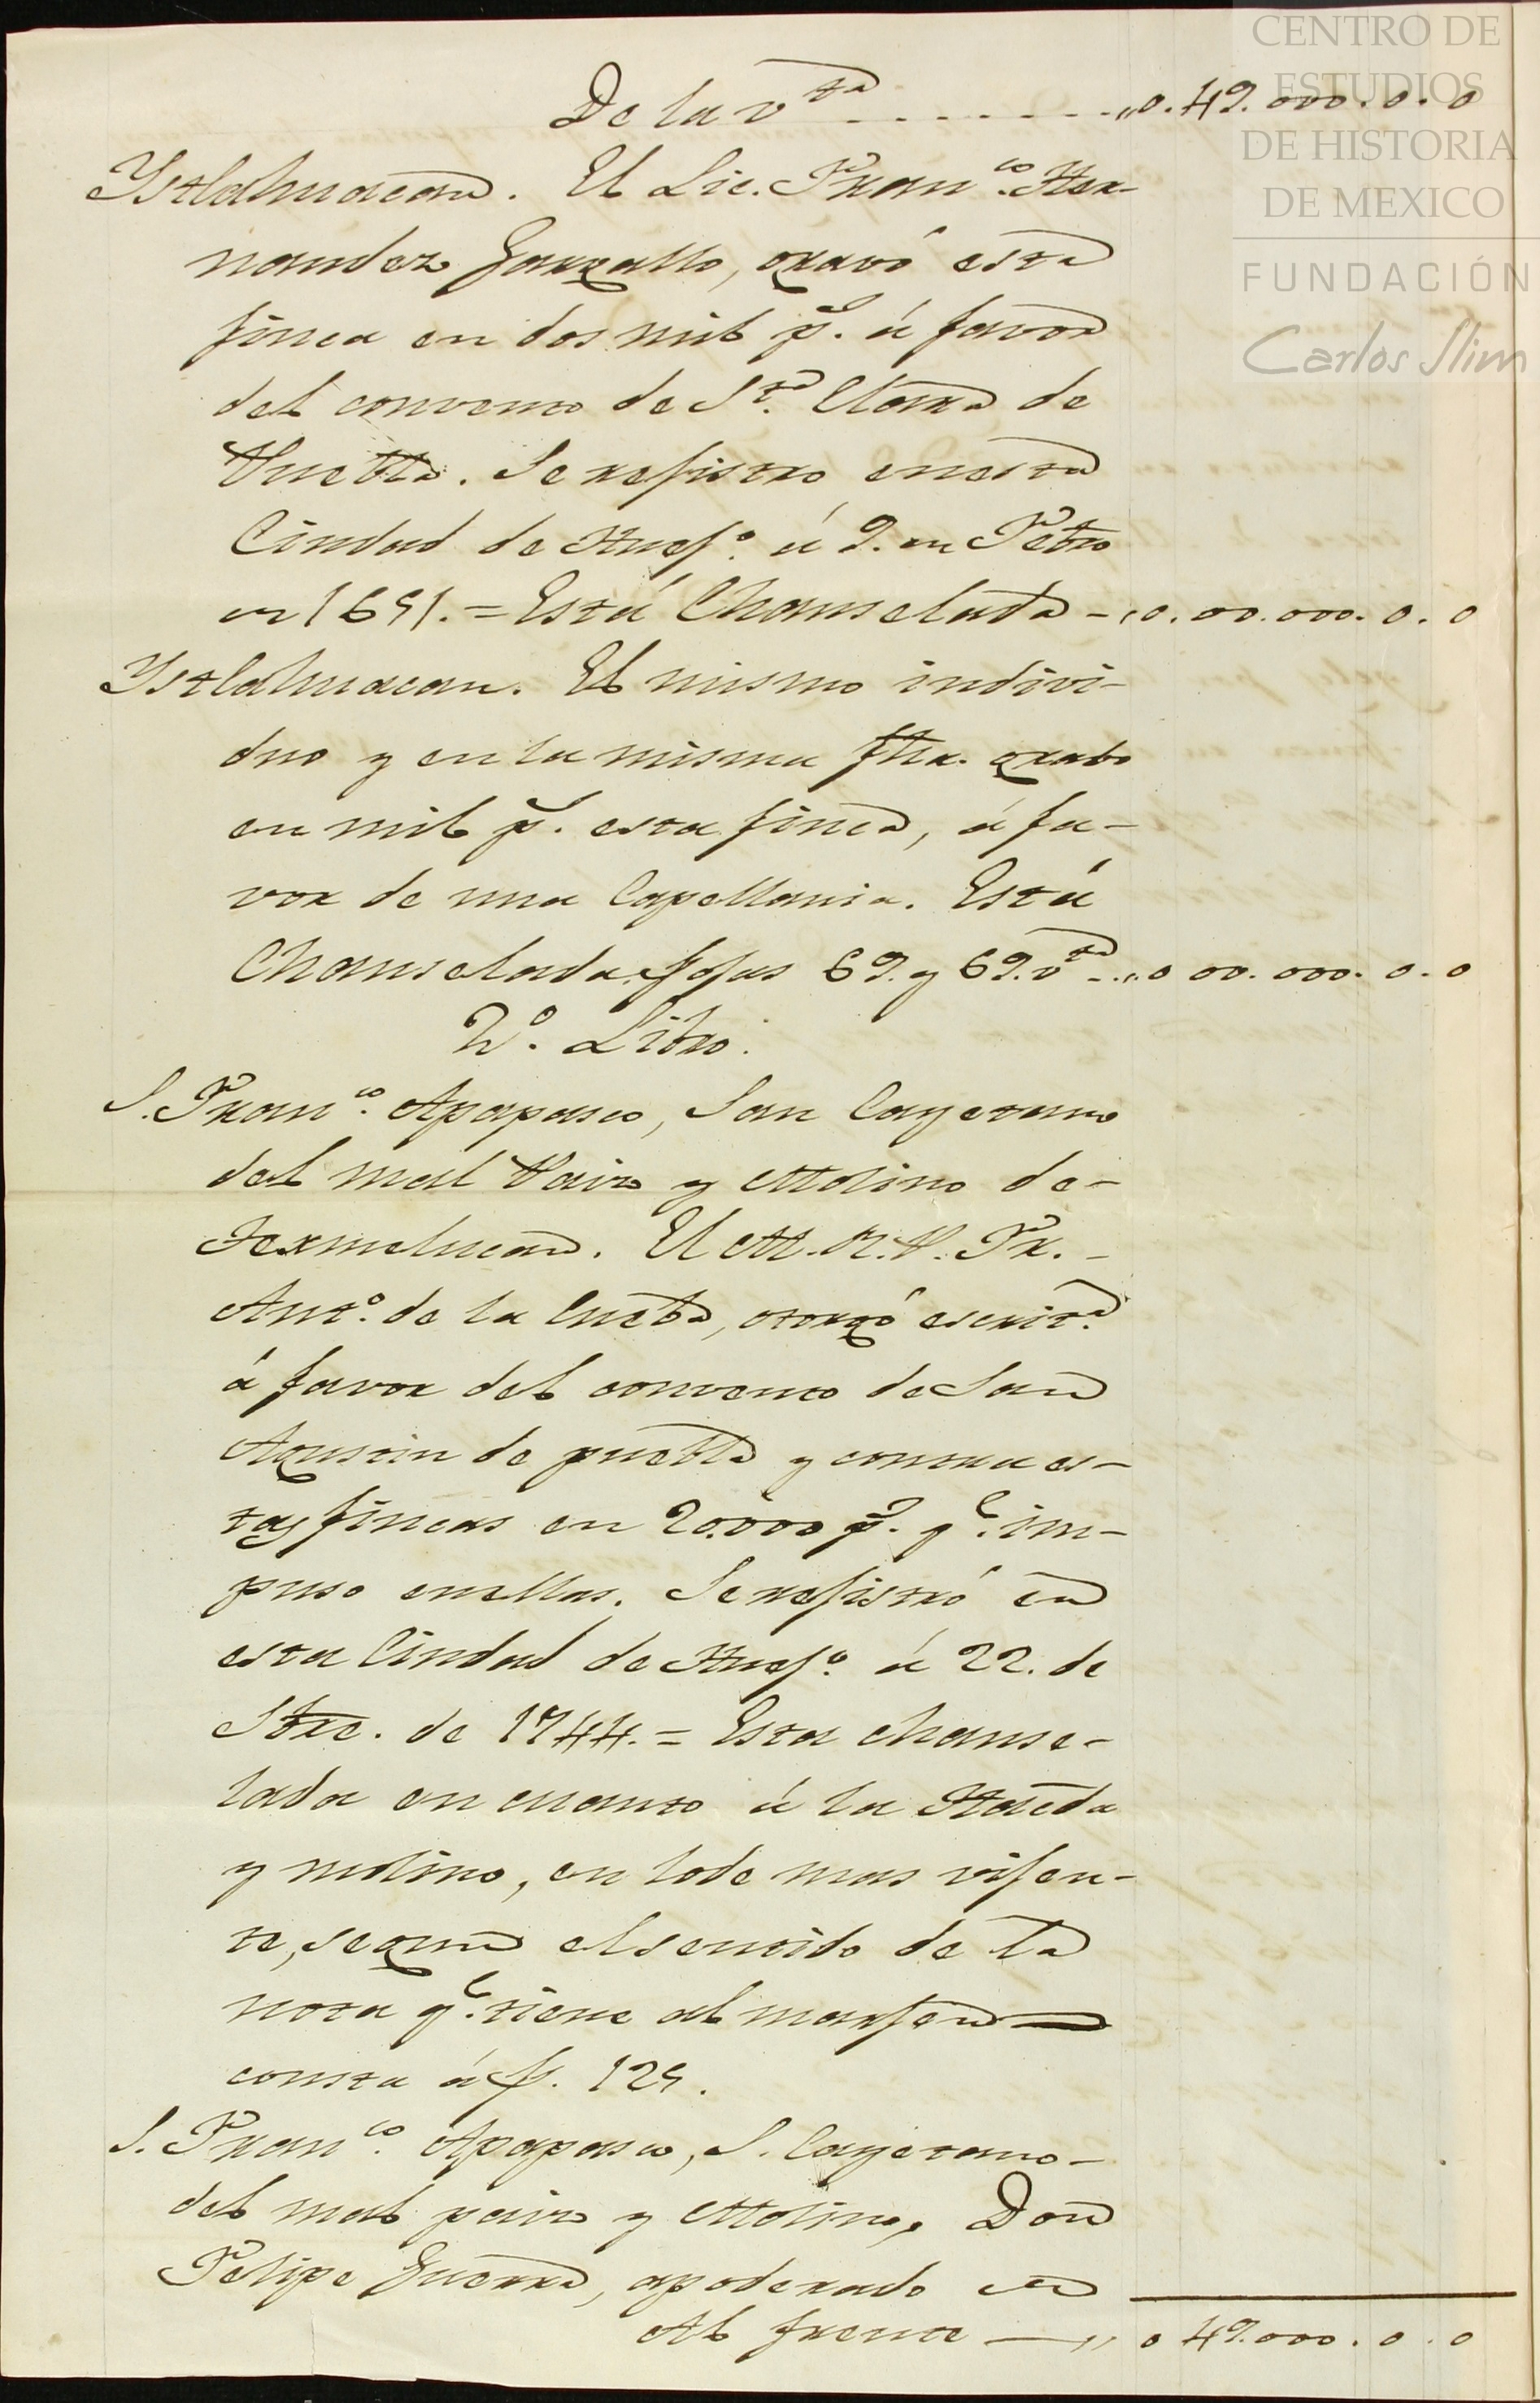 De la v.ta - - - - - - - ,,0.49.000.0.0
CENTRO DE
ESTUDIOS
DE HISTORIA
DE MEXICO
FUNDACIÓN
Carlos Slim
Ystlahuacan. El Lic. Fran.co Her-
nandez Garrallo, gravó esta
finca en dos mil p.s á favor
del convento de S.ta Clara de
Puebla. Se registro en esta
Ciudad de Huej.o á 9. en Febro
en 1691. = Está Chanselada - ,,0.00.000.0.0
Ystlahuacan. El mismo indivi-
duo y en la misma fha. grabo
en mil p.s esta finca, á fa-
vor de una Capellania. Está
Chanselada. fojas 69. y 69. v.ta - ,,0 00.000.0.0
2.o Libro.
S. Fran.co Apapasco, San Cayetano
del mal Paiz y Molino de-
Texmelucan. El M. R. P. Fr. -
Ant.o de la Cueba, otorgó escrit.a
á favor del convento de San
Agustin de puebla y contra es-
tas fincas en 20.000 p.s q.e im-
puso en ellas. Se registró en
esta Ciudad de Huej.o á 22. de
Stre. de 1744. = Esta chanse-
lada en cuanto á la Hacéda
y molino, en lo de mas vijen-
te, segun el sentido de la
nota q.e tiene al marjen
consta á f. 129.
S. Fran.co Apapasco, S. Cayetano -
del mal paiz y Molino, Don
Felipe Guerra, apoderado en
Al frente — ,, 0 49.000.0.0